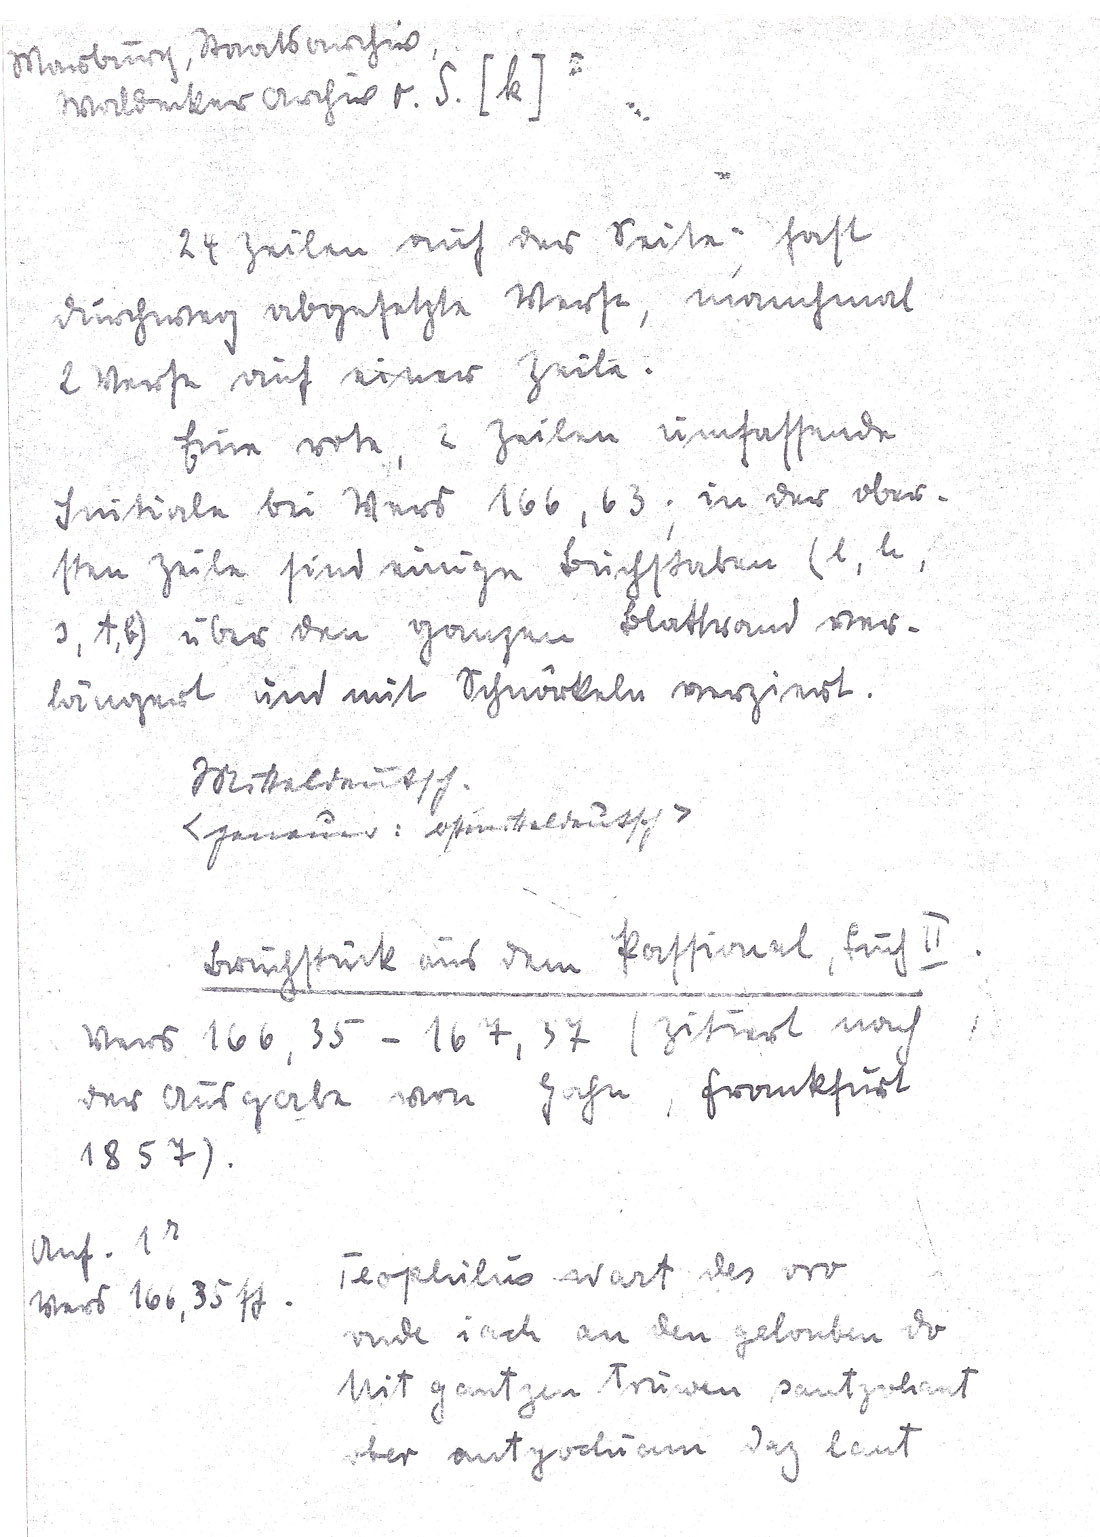 Marburg, Staatsarchiv,
Waldecker Archiv o. S. [k]
24 Zeilen auf der Seite; fast
durchweg abgesetzte Verse, manchmal
2 Verse auf einer Zeile.
Eine rote, 2 Zeilen umfassende
Initiale bei Vers 166,63; in der ober-
sten Zeile sind einige Buchstaben (l, h,
s, t, b) über den ganzen Blattrand ver-
längert und mit Schnörkeln verziert.
Mitteldeutsch.
<genauer: ostmitteldeutsch>
Bruchstück aus dem Passional, Buch II.
Vers 166,35 - 167,37 (zitiert nach
der Ausgabe von Hahn, Frankfurt
1857).
Anf. 1r
Vers 166,35 ff.
Teophilus wart des vro
vnde iach an den gelouben do
Mit gantzen truwen santzohant
vber antyochiam daz lant